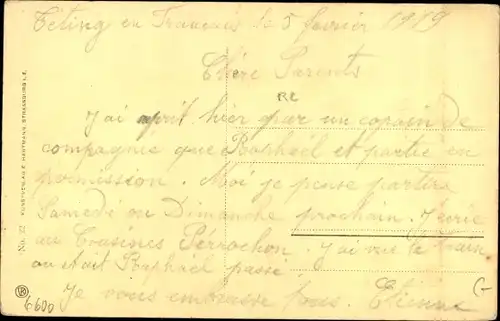 Teting en Français le 5 février 1919
Chère Parents
RL
J'ai aprit hier par un copain de
compagnie que Raphaël et partie en
permission. Moi je pense partire
Samedi ou Dimanche prochain. J'écrie
au Cousines Perrochon. J'ai vue le train
ou etait Raphaël passé.
Je vous embrasse tous. Etienne
No. 22 KUNSTVERLAG E. HARTMANN, STRASSBURG i. E.
6600